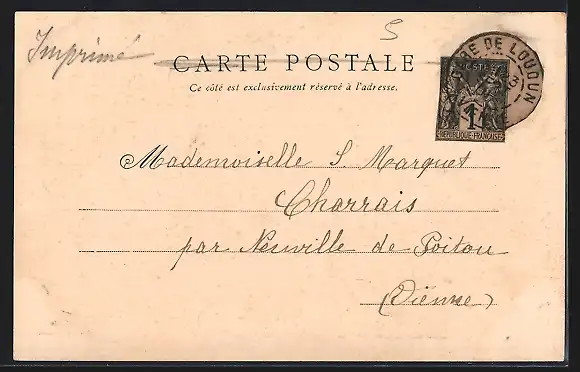 Imprimé
5
CARTE POSTALE
Ce côté est exclusivement réservé à l'adresse.
GARE DE LOUDUN
POSTES
1
REPUBLIQUE FRANÇAISE
Mademoiselle S. Marquet
Charrais
par Neuville de Poitou
(Vienne)